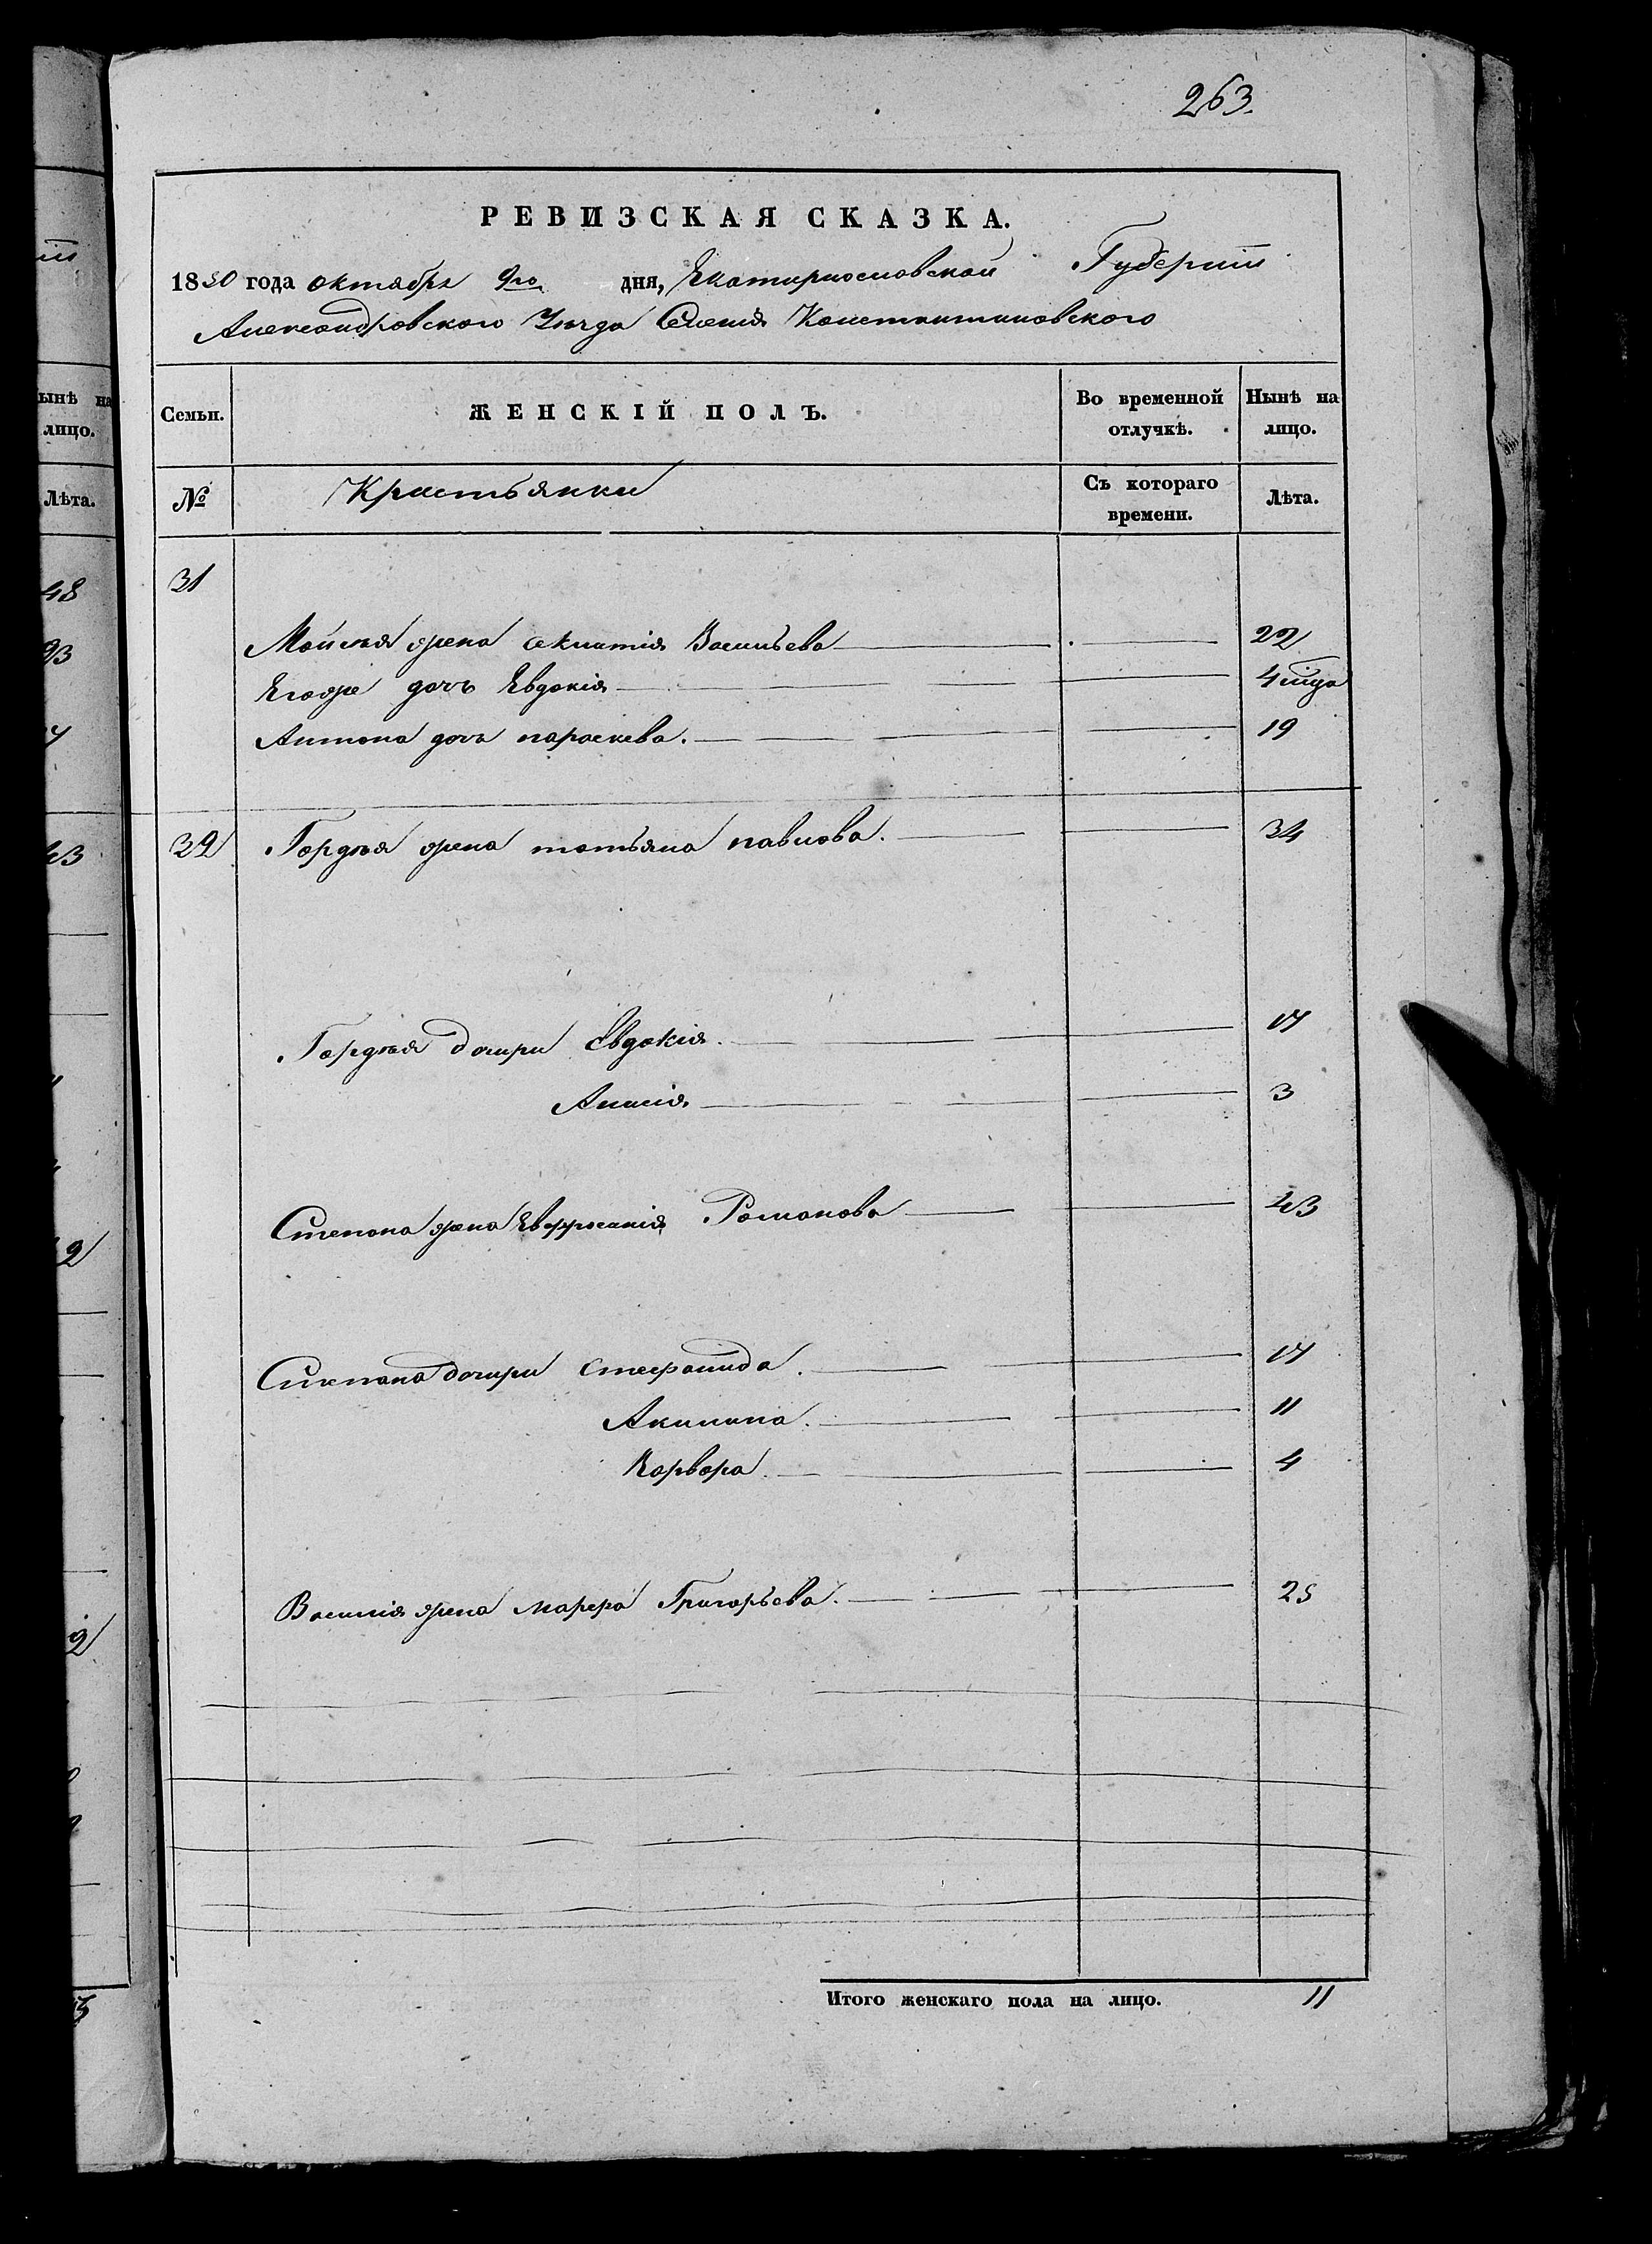 263.
РЕВИЗСКАЯ СКАЗКА.
1850 года октября 9го дня, Екатеринославской Губерніи
Александровского Уезда Селенія Константиновского
Семьи. ЖЕНСКІЙ ПОЛЪ. Во временной отлучкѣ. Нынѣ на лицо.
№ Крестьянки Съ котораго времени. Лѣта.
31
Мойсея жена Васильева 22
Егора дочь Евдокія 4 мца
Антона дочь параскева. 19
32 Гордѣя жена татьяна павлова. 34
Гордѣя дочери Евдокія. 17
Анисія 3
Степана жена Евфросинія Романова 43
Степана дочери Стефанида. 17
Акилина. 11
Варвара. 4
Василія жена марфа Григорьева. 25
Итого женскаго пола на лицо. 11
ынѣ на
лицо.
Лѣта.
48
23
43